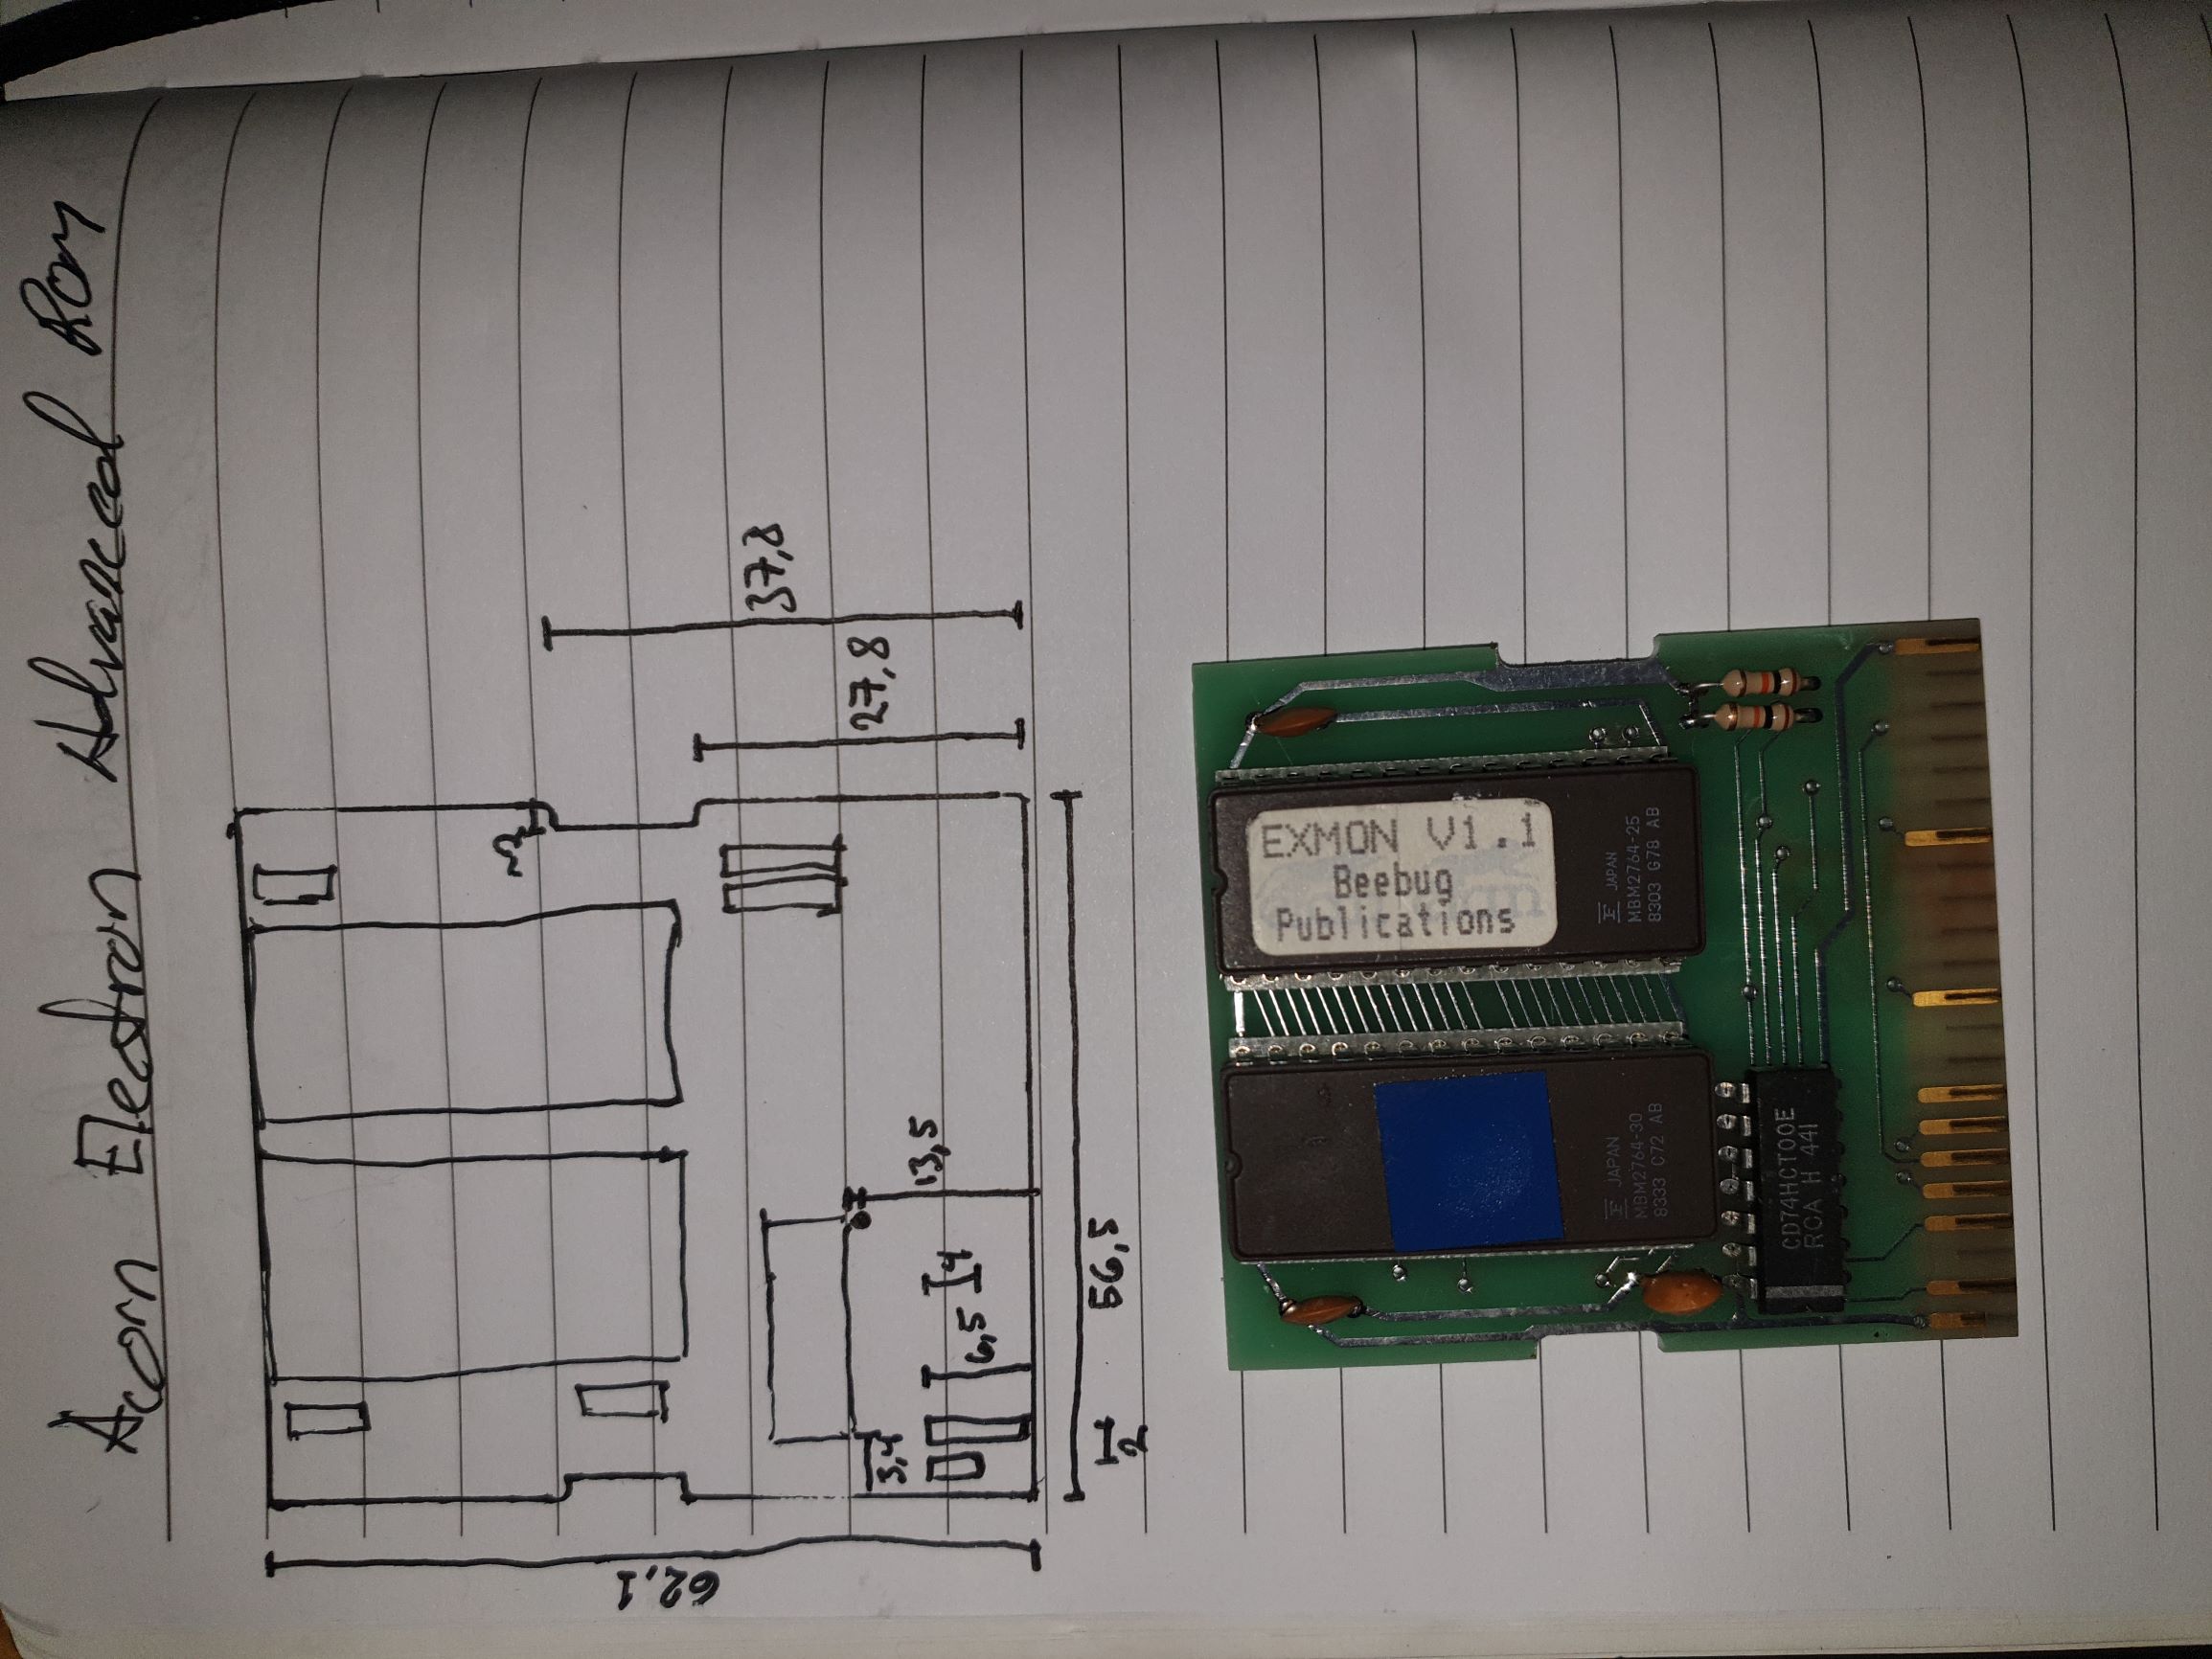 Acorn Electron Advanced Rom
3
62,1
37,8
27,8
3,4
13,5
6,5
4
56,5
2
EXMON V1.1
Beebug
Publications
JAPAN
MBM2764-30
8333 C72 AB
JAPAN
MBM2764-25
8303 G78 AB
CD74HCT00E
RCA H 441